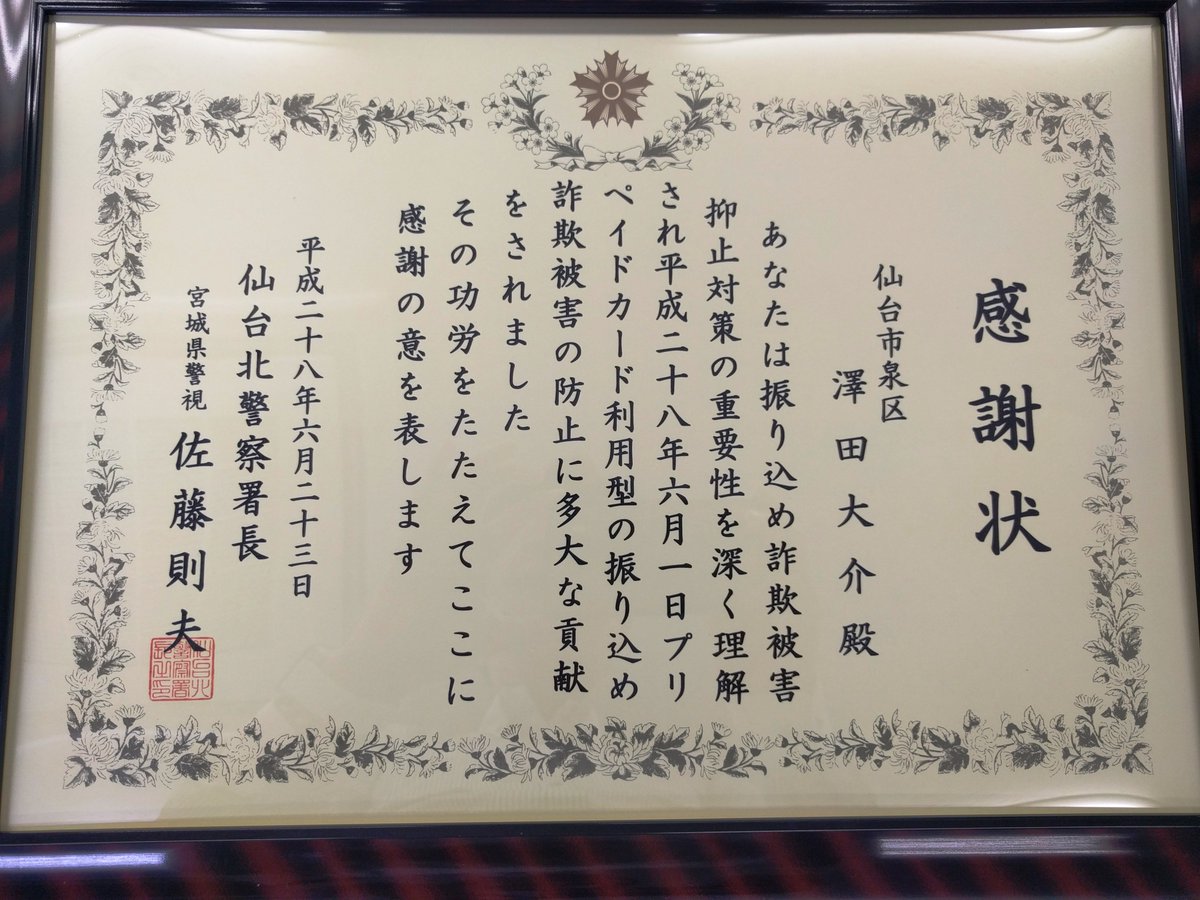 感謝状
仙台市泉区
澤田大介殿
あなたは振り込め詐欺被害
抑止対策の重要性を深く理解
され平成二十八年六月一日プリ
ペイドカード利用型の振り込め
詐欺被害の防止に多大な貢献
をされました
その功労をたたえてここに
感謝の意を表します
平成二十八年六月二十三日
仙台北警察署長
宮城県警視 佐藤則夫
仙台北警察署長之印